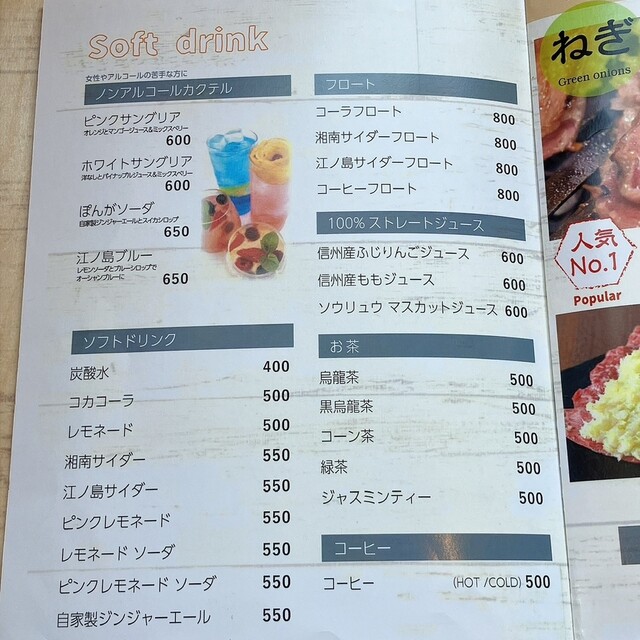 Soft drink
女性やアルコールの苦手な方に
ノンアルコールカクテル
ピンクサングリア
オレンジとマンゴージュース&ミックスベリー
600
ホワイトサングリア
洋なしとパイナップルジュース&ミックスベリー
600
ぽんがソーダ
自家製ジンジャーエールとスイカシロップ
650
江ノ島ブルー
レモンソーダとブルーシロップで
オーシャンブルーに
650
ソフトドリンク
炭酸水 400
コカコーラ 500
レモネード 500
湘南サイダー 550
江ノ島サイダー 550
ピンクレモネード 550
レモネード ソーダ 550
ピンクレモネード ソーダ 550
自家製ジンジャーエール 550
フロート
コーラフロート 800
湘南サイダーフロート 800
江ノ島サイダーフロート 800
コーヒーフロート 800
100%ストレートジュース
信州産ふじりんごジュース 600
信州産ももジュース 600
ソウリュウ マスカットジュース 600
お茶
烏龍茶 500
黒烏龍茶 500
コーン茶 500
緑茶 500
ジャスミンティー 500
コーヒー
コーヒー (HOT /COLD) 500
ねぎ
Green onions
人気
No.1
Popular